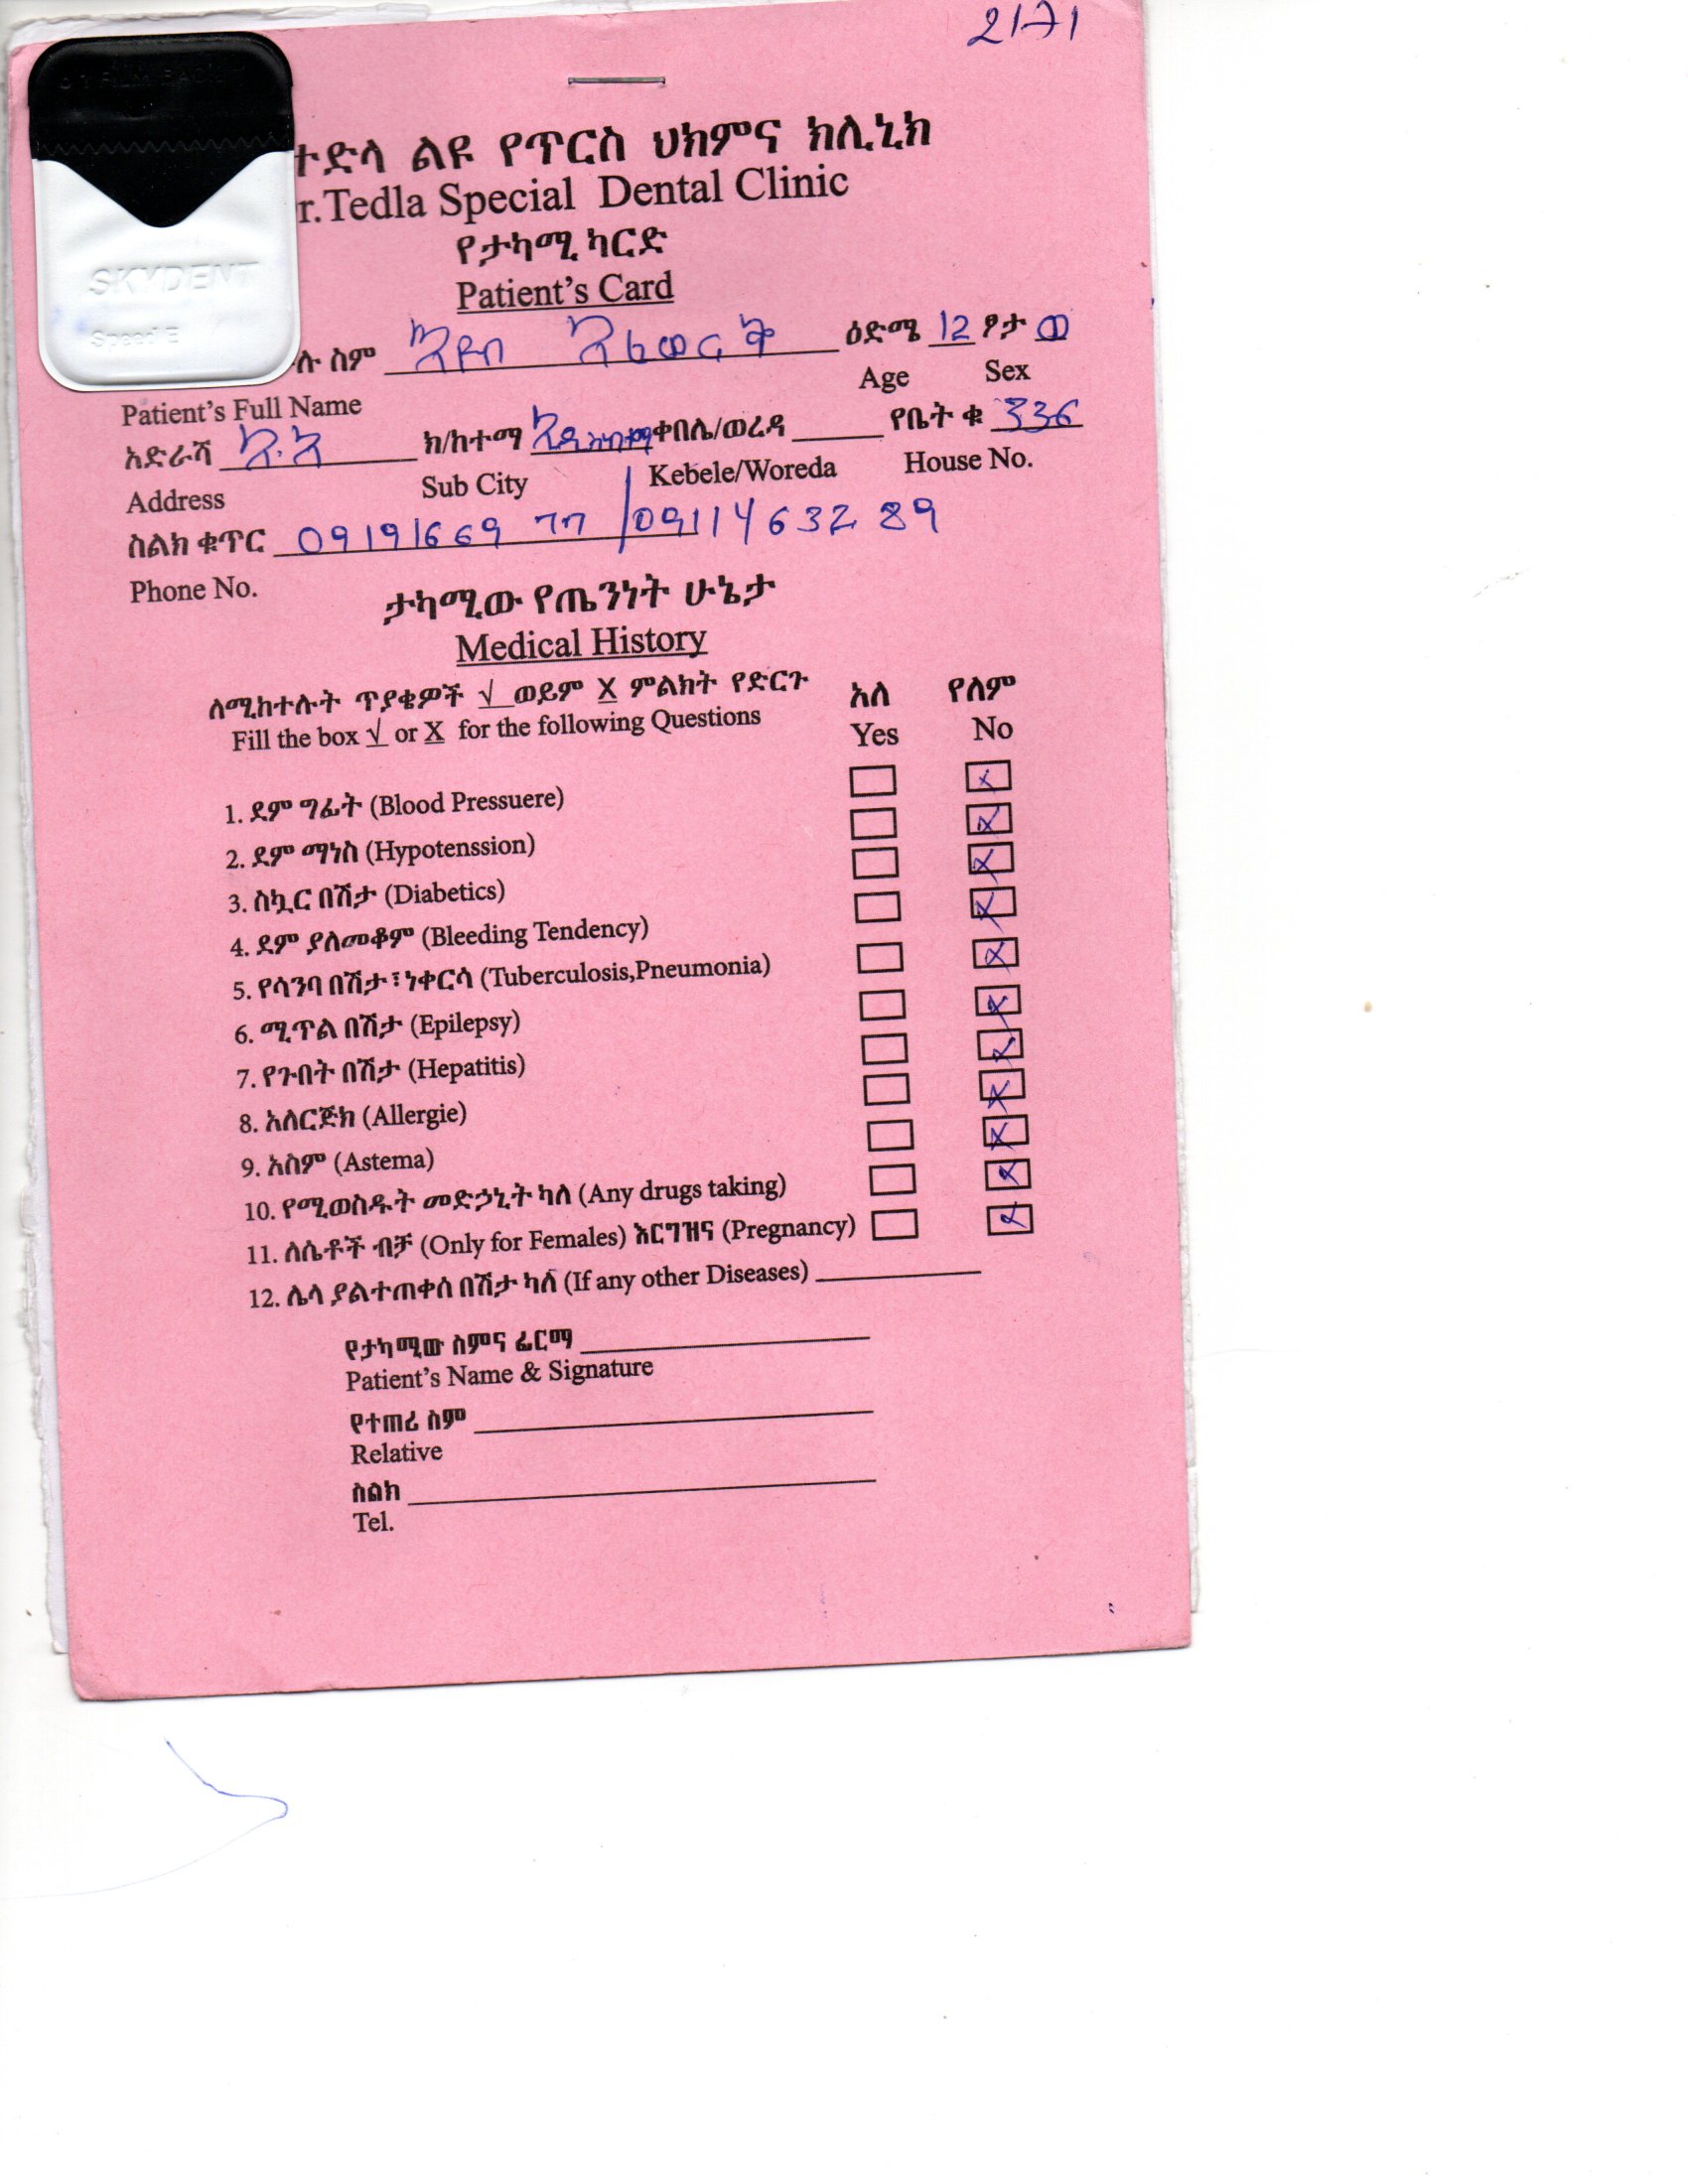 2171
ተድላ ልዩ የጥርስ ህክምና ክሊኒክ
r.Tedla Special Dental Clinic
የታካሚ ካርድ
Patient's Card
SKYDENT
Speed E
ሉ ስም ዕድሜ 12 ፆታ ወ
Patient's Full Name Age Sex
አድራሻ አ.አ ክ/ከተማ ቀበሌ/ወረዳ የቤት ቁ 336
Address Sub City Kebele/Woreda House No.
ስልክ ቁጥር 09191669 77 / 09114632 89
Phone No.
ታካሚው የጤንነት ሁኔታ
Medical History
ለሚከተሉት ጥያቄዎች √ ወይም X ምልክት የድርጉ አለ የለም
Fill the box √ or X for the following Questions Yes No
1. ደም ግፊት (Blood Pressuere) x
2. ደም ማነስ (Hypotenssion) x
3. ስኳር በሽታ (Diabetics) x
4. ደም ያለመቆም (Bleeding Tendency) x
5. የሳንባ በሽታ፣ነቀርሳ (Tuberculosis,Pneumonia) x
6. ሚጥል በሽታ (Epilepsy) x
7. የጉበት በሽታ (Hepatitis) x
8. አለርጅክ (Allergie) x
9. አስም (Astema) x
10. የሚወስዱት መድኃኒት ካለ (Any drugs taking) x
11. ለሴቶች ብቻ (Only for Females) እርግዝና (Pregnancy) x
12. ሌላ ያልተጠቀሰ በሽታ ካለ (If any other Diseases)
የታካሚው ስምና ፊርማ
Patient's Name & Signature
የተጠሪ ስም
Relative
ስልክ
Tel.